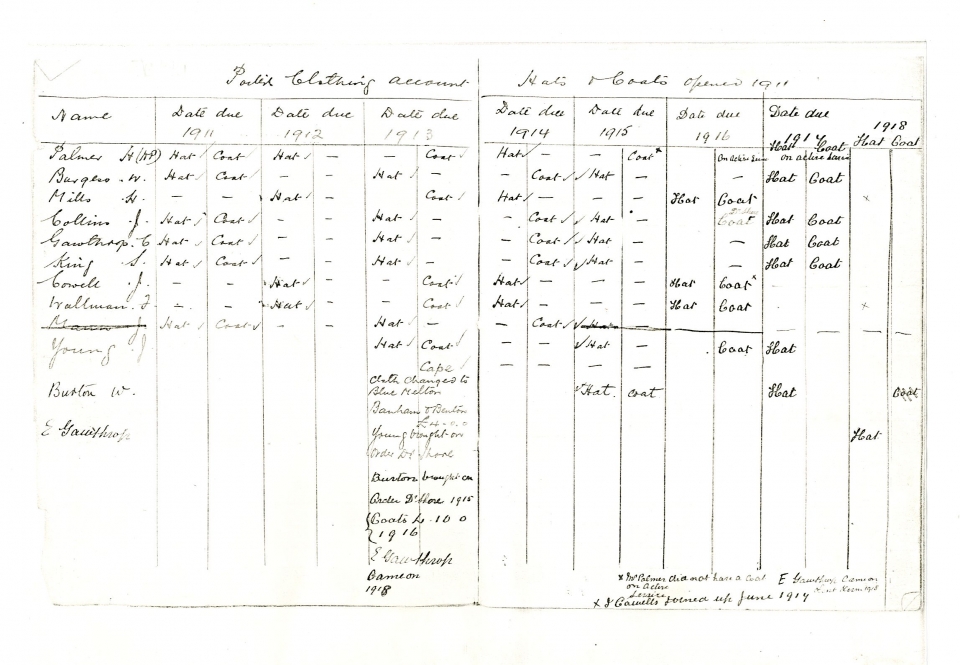 Clothing account Hats & Coats opened 1911
Name Date due 1911 Date due 1912 Date due 1913 Date due 1914 Date due 1915 Date due 1916 Date due 1917 1918
Hat Coat Hat Coat
Palmer H (HP) Hat Coat Hat – – Coat Hat – – Coat x On Active on active
Burgess W. Hat Coat – – Hat – – Coat Hat – – Hat Coat
Mills H. – – Hat – – Coat Hat – – – Hat Coat x
Collins J. Hat Coat – – Hat – – Coat Hat Coat Hat Coat
Gawthrop C Hat Coat – – Hat – – Coat Hat – – Hat Coat
King S. Hat Coat – – Hat – – Coat Hat – – Hat Coat
Cowell J. – – Hat – – Coat Hat – – – Hat Coat x
Wallman F. – – Hat – – Coat Hat – – – Hat Coat x
Mann J Hat Coat – – Hat – – Coat Hat – – – – – –
Young J Hat Coat – – Hat – Coat Hat
Cape – – – –
Burton W. Hat coat Hat Coat
Cloth changed to
Blue Melton
Banham & Benton
£4-0.0
E Gawthrop Hat
Young brought on
Order Dr Shore
Burton brought on
Order Dr Shore 1915
Coats 4.10 0
1916
E Gawthrop
Came on
1918
x Mr Palmer did not have a Coat
on Active
Service
E Gawthrop Came on
1918
x J Cowells Joined up June 1917